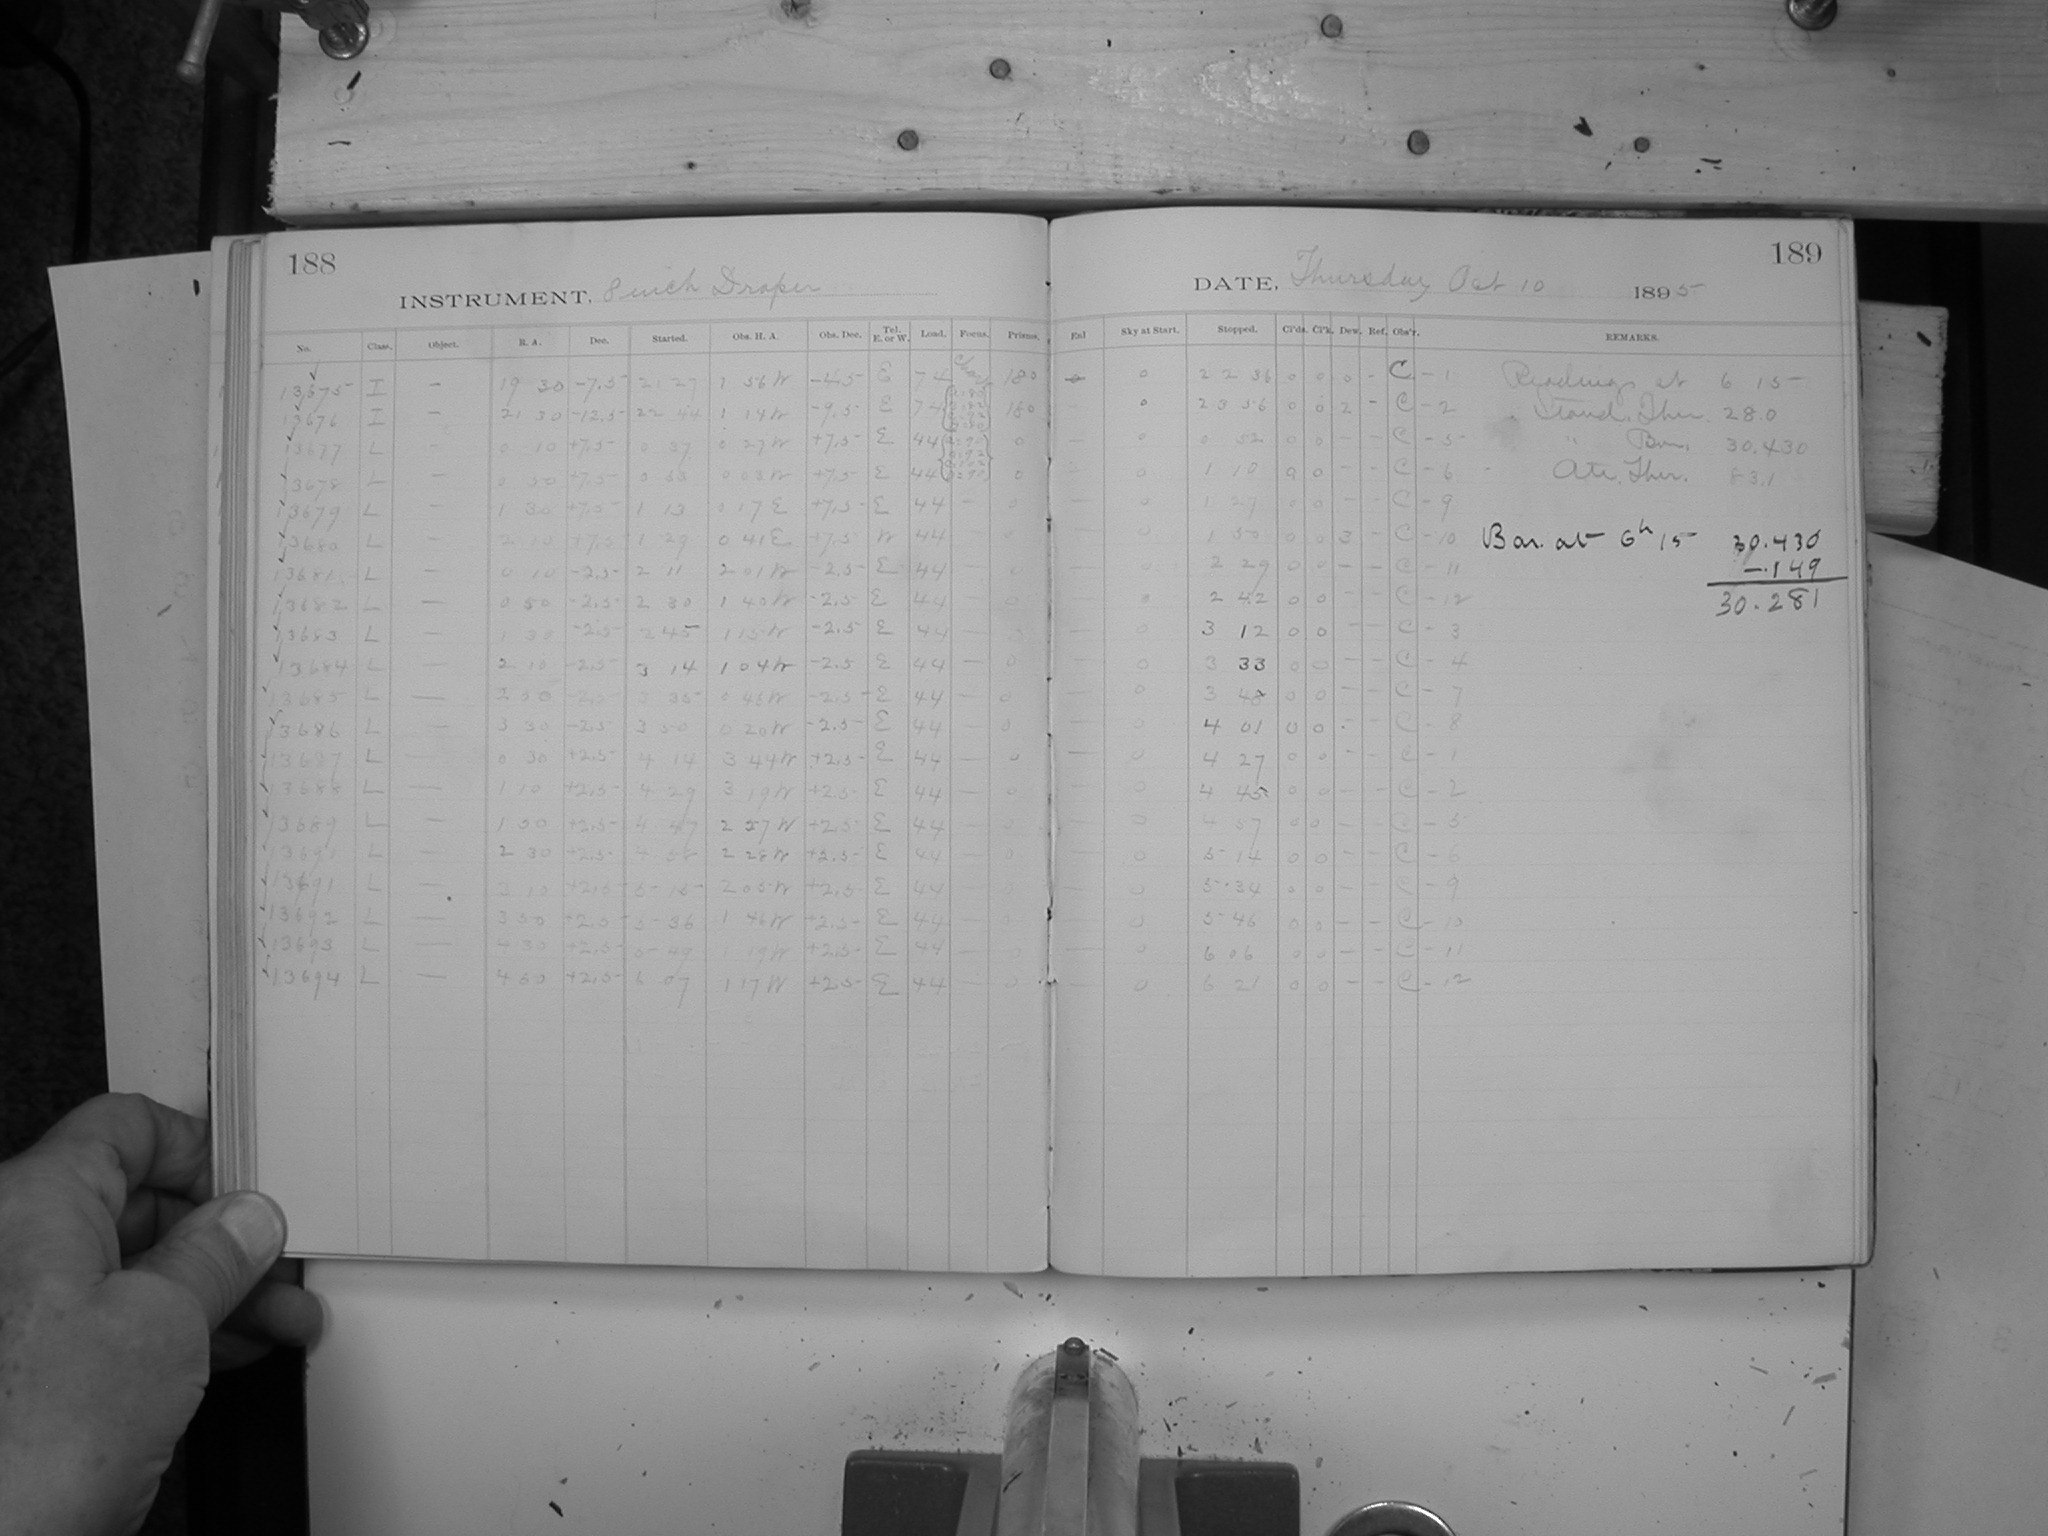 188
INSTRUMENT, 8 inch Draper
No. Class. Object. R. A. Dec. Started. Obs. H. A. Obs. Dec. Tel. E. or W. Load. Focus. Prisms.
13675 I – 19 30 -7.5 21 27 1 56 W -4.5 E 74 180
13676 I – 21 30 -12.5 22 44 1 14 W -9.5 E 74 180
13677 L – 0 10 +7.5 0 37 0 27 W +7.5 E 44 0
13678 L – 0 50 +7.5 0 53 0 03 W +7.5 E 44 0
13679 L – 1 30 +7.5 1 13 0 17 E +7.5 E 44 – 0
13680 L – 2 10 +7.5 1 29 0 41 E +7.5 W 44 – 0
13681 L – 0 10 -2.5 2 11 2 01 W -2.5 E 44 – 0
13682 L – 0 50 -2.5 2 30 1 40 W -2.5 E 44 – 0
13683 L – 1 30 -2.5 2 45 1 15 W -2.5 E 44 – 0
13684 L – 2 10 -2.5 3 14 1 04 W -2.5 E 44 – 0
13685 L – 2 50 -2.5 3 35 0 46 W -2.5 E 44 – 0
13686 L – 3 30 -2.5 3 50 0 20 W -2.5 E 44 – 0
13687 L – 0 30 +2.5 4 14 3 44 W +2.5 E 44 – 0
13688 L – 1 10 +2.5 4 29 3 19 W +2.5 E 44 – 0
13689 L – 1 50 +2.5 4 47 2 57 W +2.5 E 44 – 0
L – 2 30 +2.5 4 58 2 28 W +2.5 E 44 – 0
13691 L – 3 10 +2.5 5 15 2 05 W +2.5 E 44 – 0
13692 L – 3 50 +2.5 5 36 1 46 W +2.5 E 44 – 0
13693 L – 4 30 +2.5 5 49 1 19 W +2.5 E 44 – 0
13694 L – 4 50 +2.5 6 07 1 17 W +2.5 E 44 – 0
189
DATE, Thursday Oct 10 1895
Exl Sky at Start. Stopped. Cl'ds. Cl'k. Dew. Ref. Obs'r. REMARKS.
0 22 36 0 0 0 - C - 1 Readings at 6 15
0 23 56 0 0 2 - C - 2 Stand. Ther. 28.0
– 0 0 52 0 0 - - C - 5 " Bar. 30.430
– 0 1 10 0 0 - - C - 6 Att. Ther.
– 0 1 27 0 0 - - C - 9
– 0 1 50 0 0 3 - C - 10 Bar. at 6h 15 30.430
– 0 2 29 0 0 - - C - 11 -.149
– 0 2 42 0 0 - - C - 12 30.281
– 0 3 12 0 0 - - C - 3
– 0 3 33 0 0 - - C - 4
– 0 3 48 0 0 - - C - 7
– 0 4 01 0 0 - - C - 8
– 0 4 27 0 0 - - C - 1
– 0 4 45 0 0 - - C - 2
– 0 4 57 0 0 - - C - 5
– 0 5 14 0 0 - - C - 6
– 0 5 34 0 0 - - C - 9
– 0 5 46 0 0 - - C - 10
– 0 6 06 0 0 - - C - 11
– 0 6 21 0 0 - - C - 12